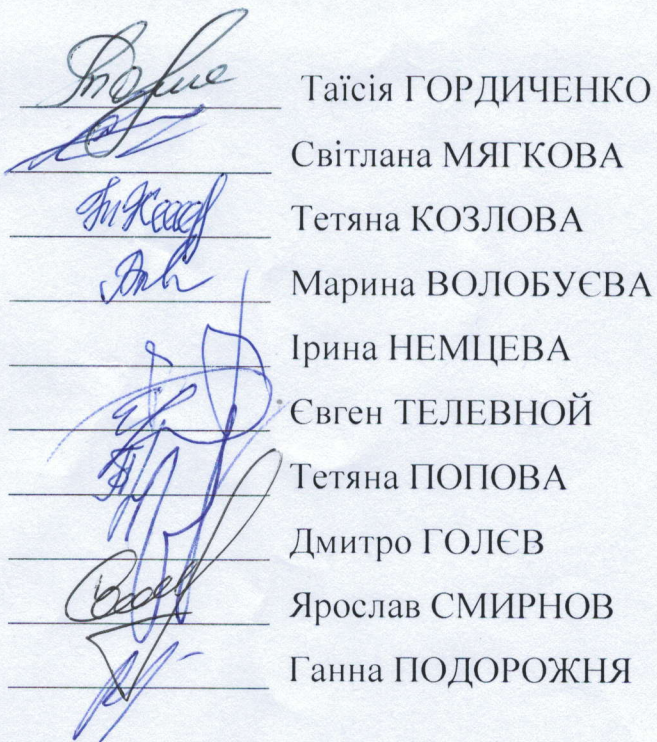 Таїсія ГОРДИЧЕНКО
Світлана МЯГКОВА
Тетяна КОЗЛОВА
Марина ВОЛОБУЄВА
Ірина НЕМЦЕВА
Євген ТЕЛЕВНОЙ
Тетяна ПОПОВА
Дмитро ГОЛЄВ
Ярослав СМИРНОВ
Ганна ПОДОРОЖНЯ